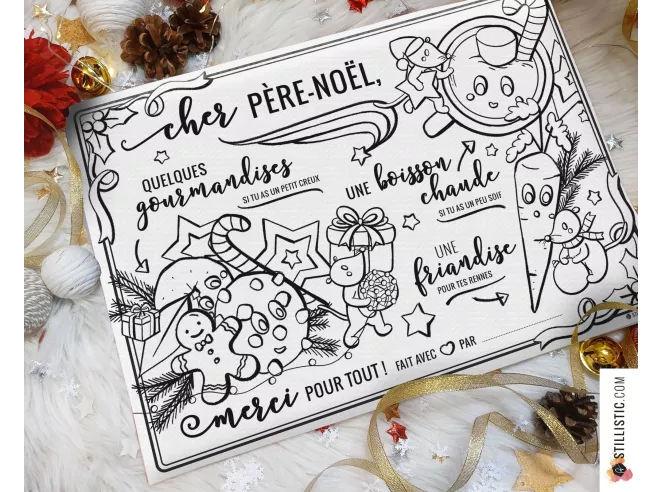 cher PÈRE-NOËL,
QUELQUES
gourmandises
SI TU AS UN PETIT CREUX
UNE boisson
chaude
SI TU AS UN PEU SOIF
UNE
friandise
POUR TES RENNES
merci POUR TOUT ! FAIT AVEC PAR
STILLISTIC.COM